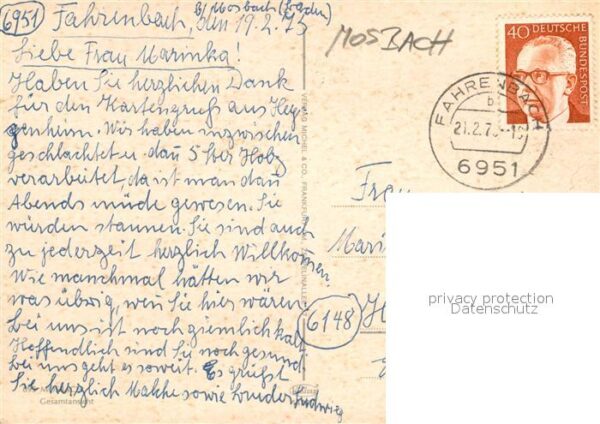 6951 Fahrenbach, b/Mosbach (Baden)
den 19.2.75
Liebe Frau Marinka!
Haben Sie herzlichen Dank
für den Kartengruß aus Hep-
penheim. Wir haben inzwischen
geschlachtet u. dan 5 ster Holz
verarbeitet, da ist man dan
Abends müde gewesen. Sie
würden staunen. Sie sind auch
zu jederzeit herzlich Willkommen.
Wie manchmal hätten wir
was übrig, wen Sie hier wären.
Bei uns ist noch ziemlich kalt
Hoffendlich sind Sie noch gesund
bei uns geht es soweit. Es grüßst
Sie herzlich sowie
Ludwig
Gesamtansicht
VERLAG MICHEL & CO., FRANKFURT/M.
MOSBACH
40 DEUTSCHE
BUNDESPOST
FAHRENBACH
b
21.2.75
6951
Frau
Mari
6148
privacy protection
Datenschutz